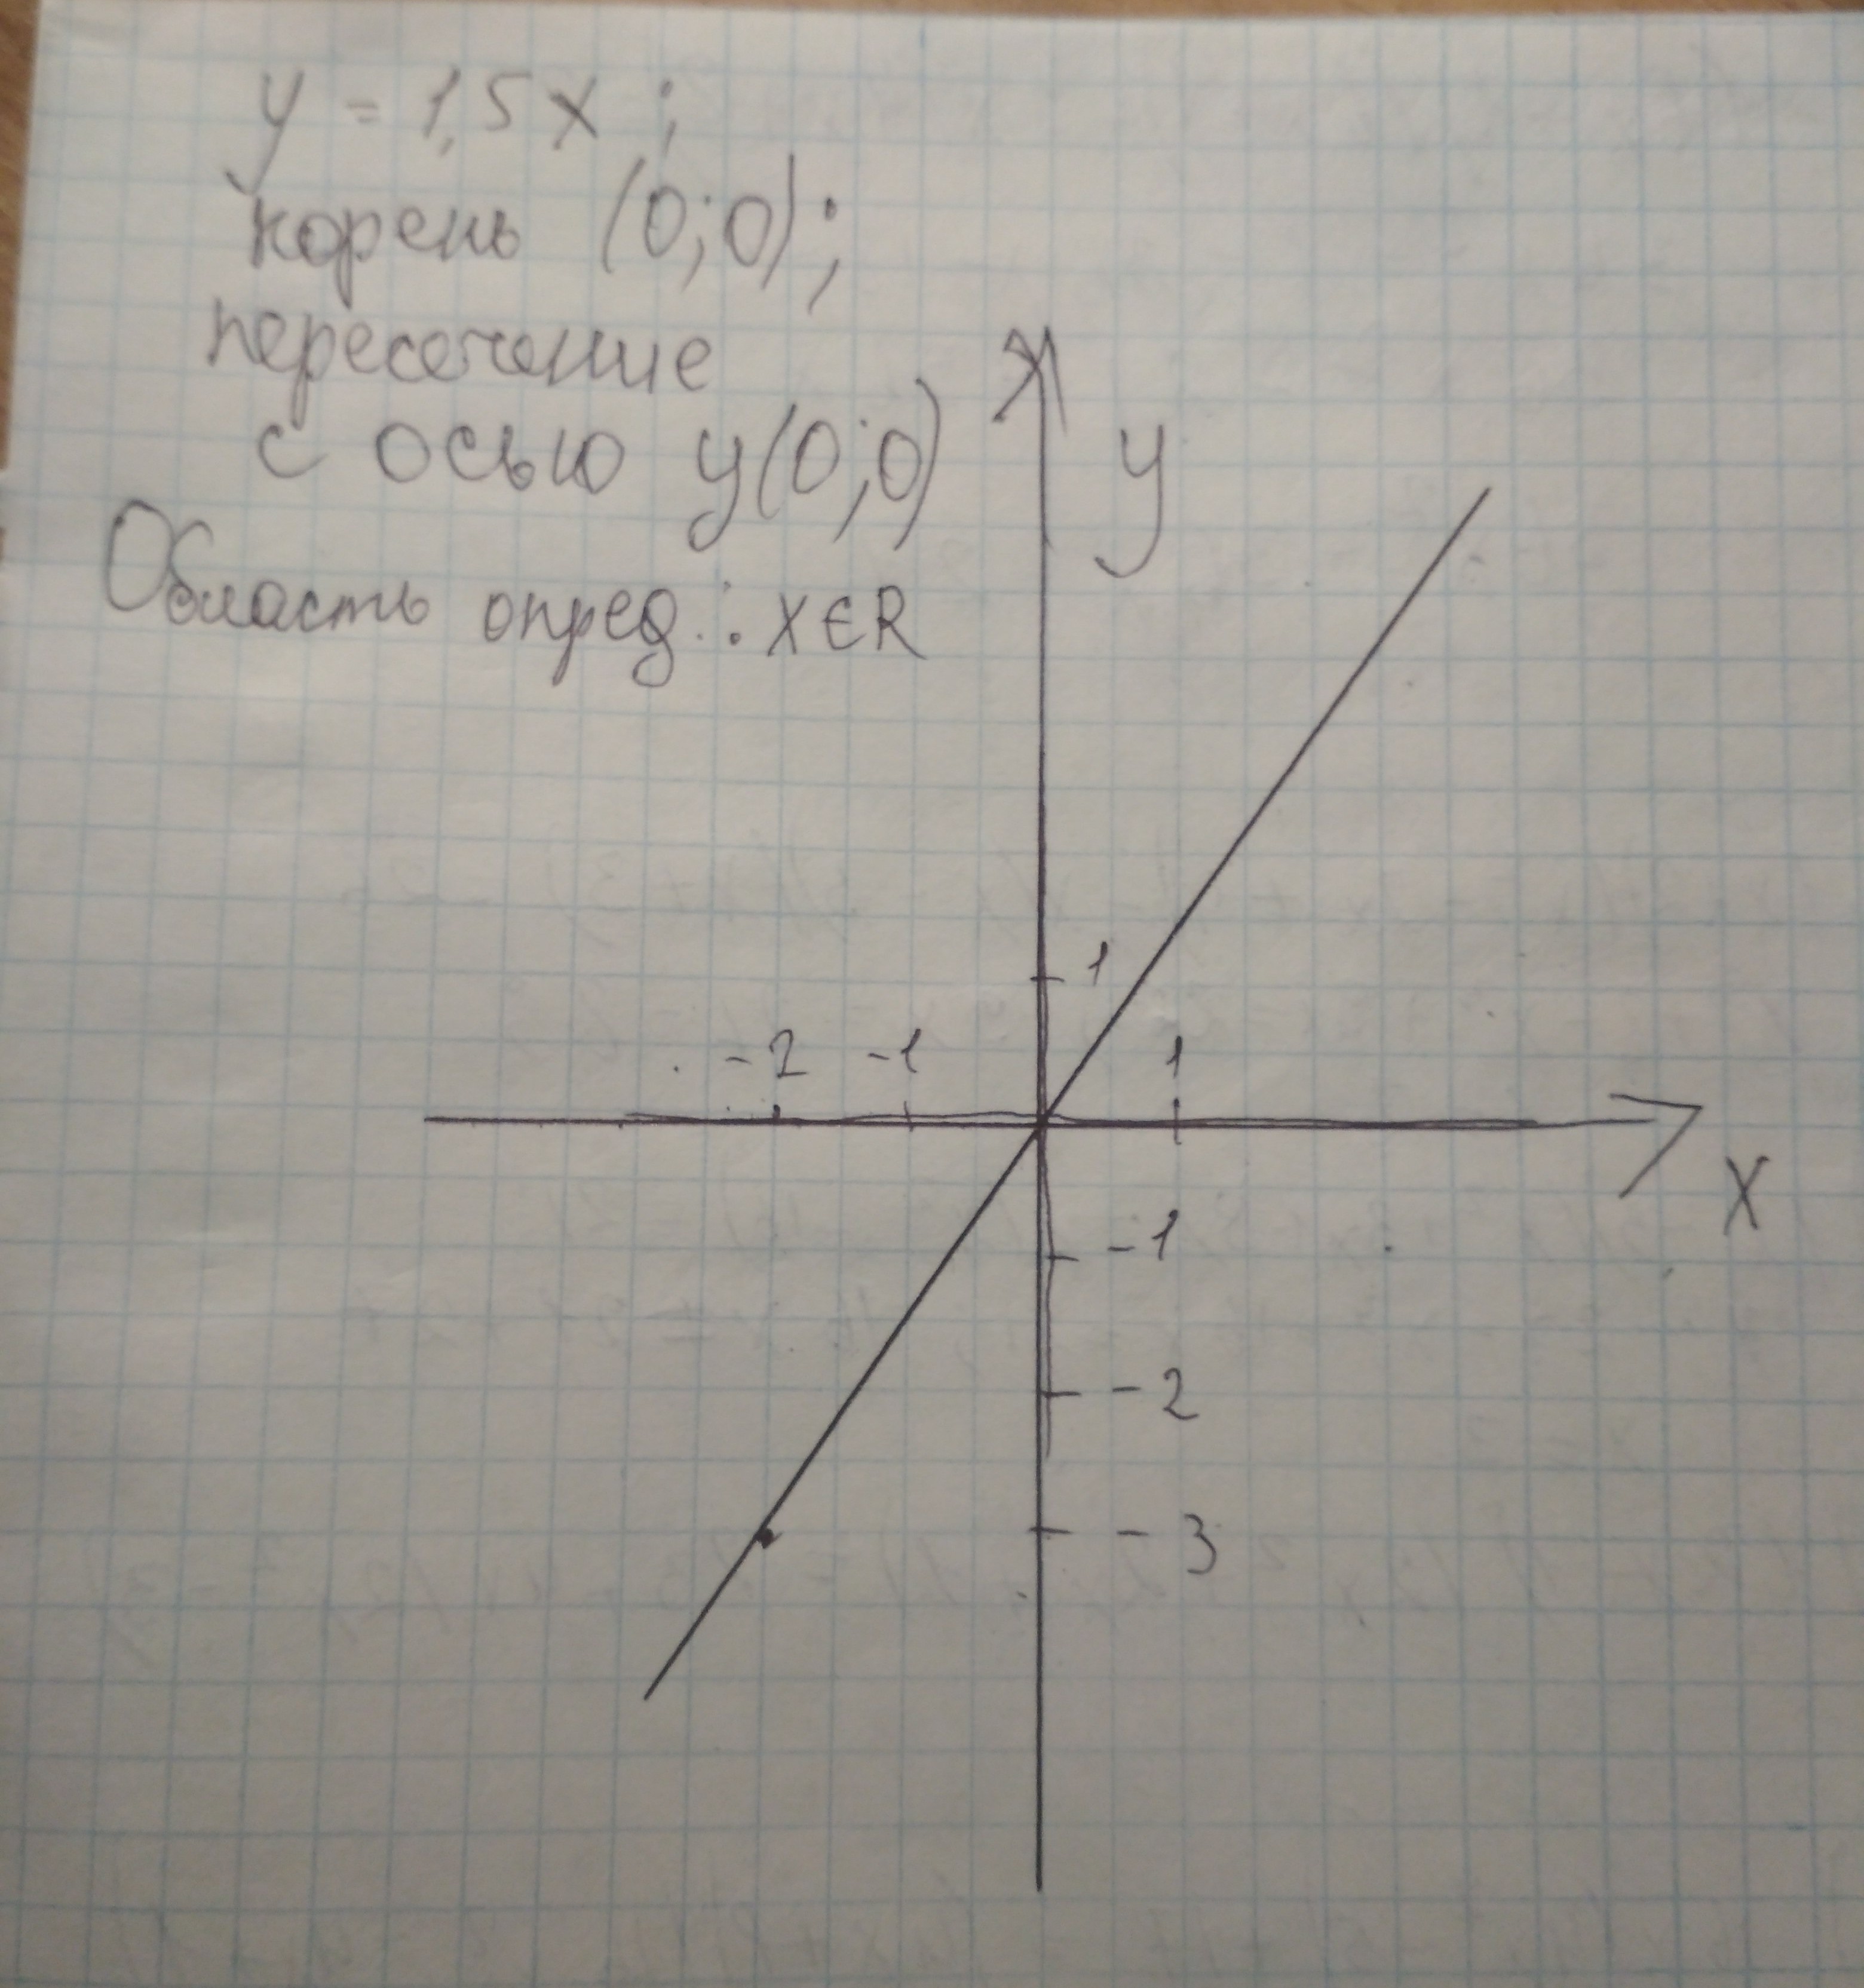 y = 1,5x ;
корень (0;0);
пересечение
с осью y(0;0)
Область опред.: x∈R
y
1
-2 -1 1
x
-1
-2
-3